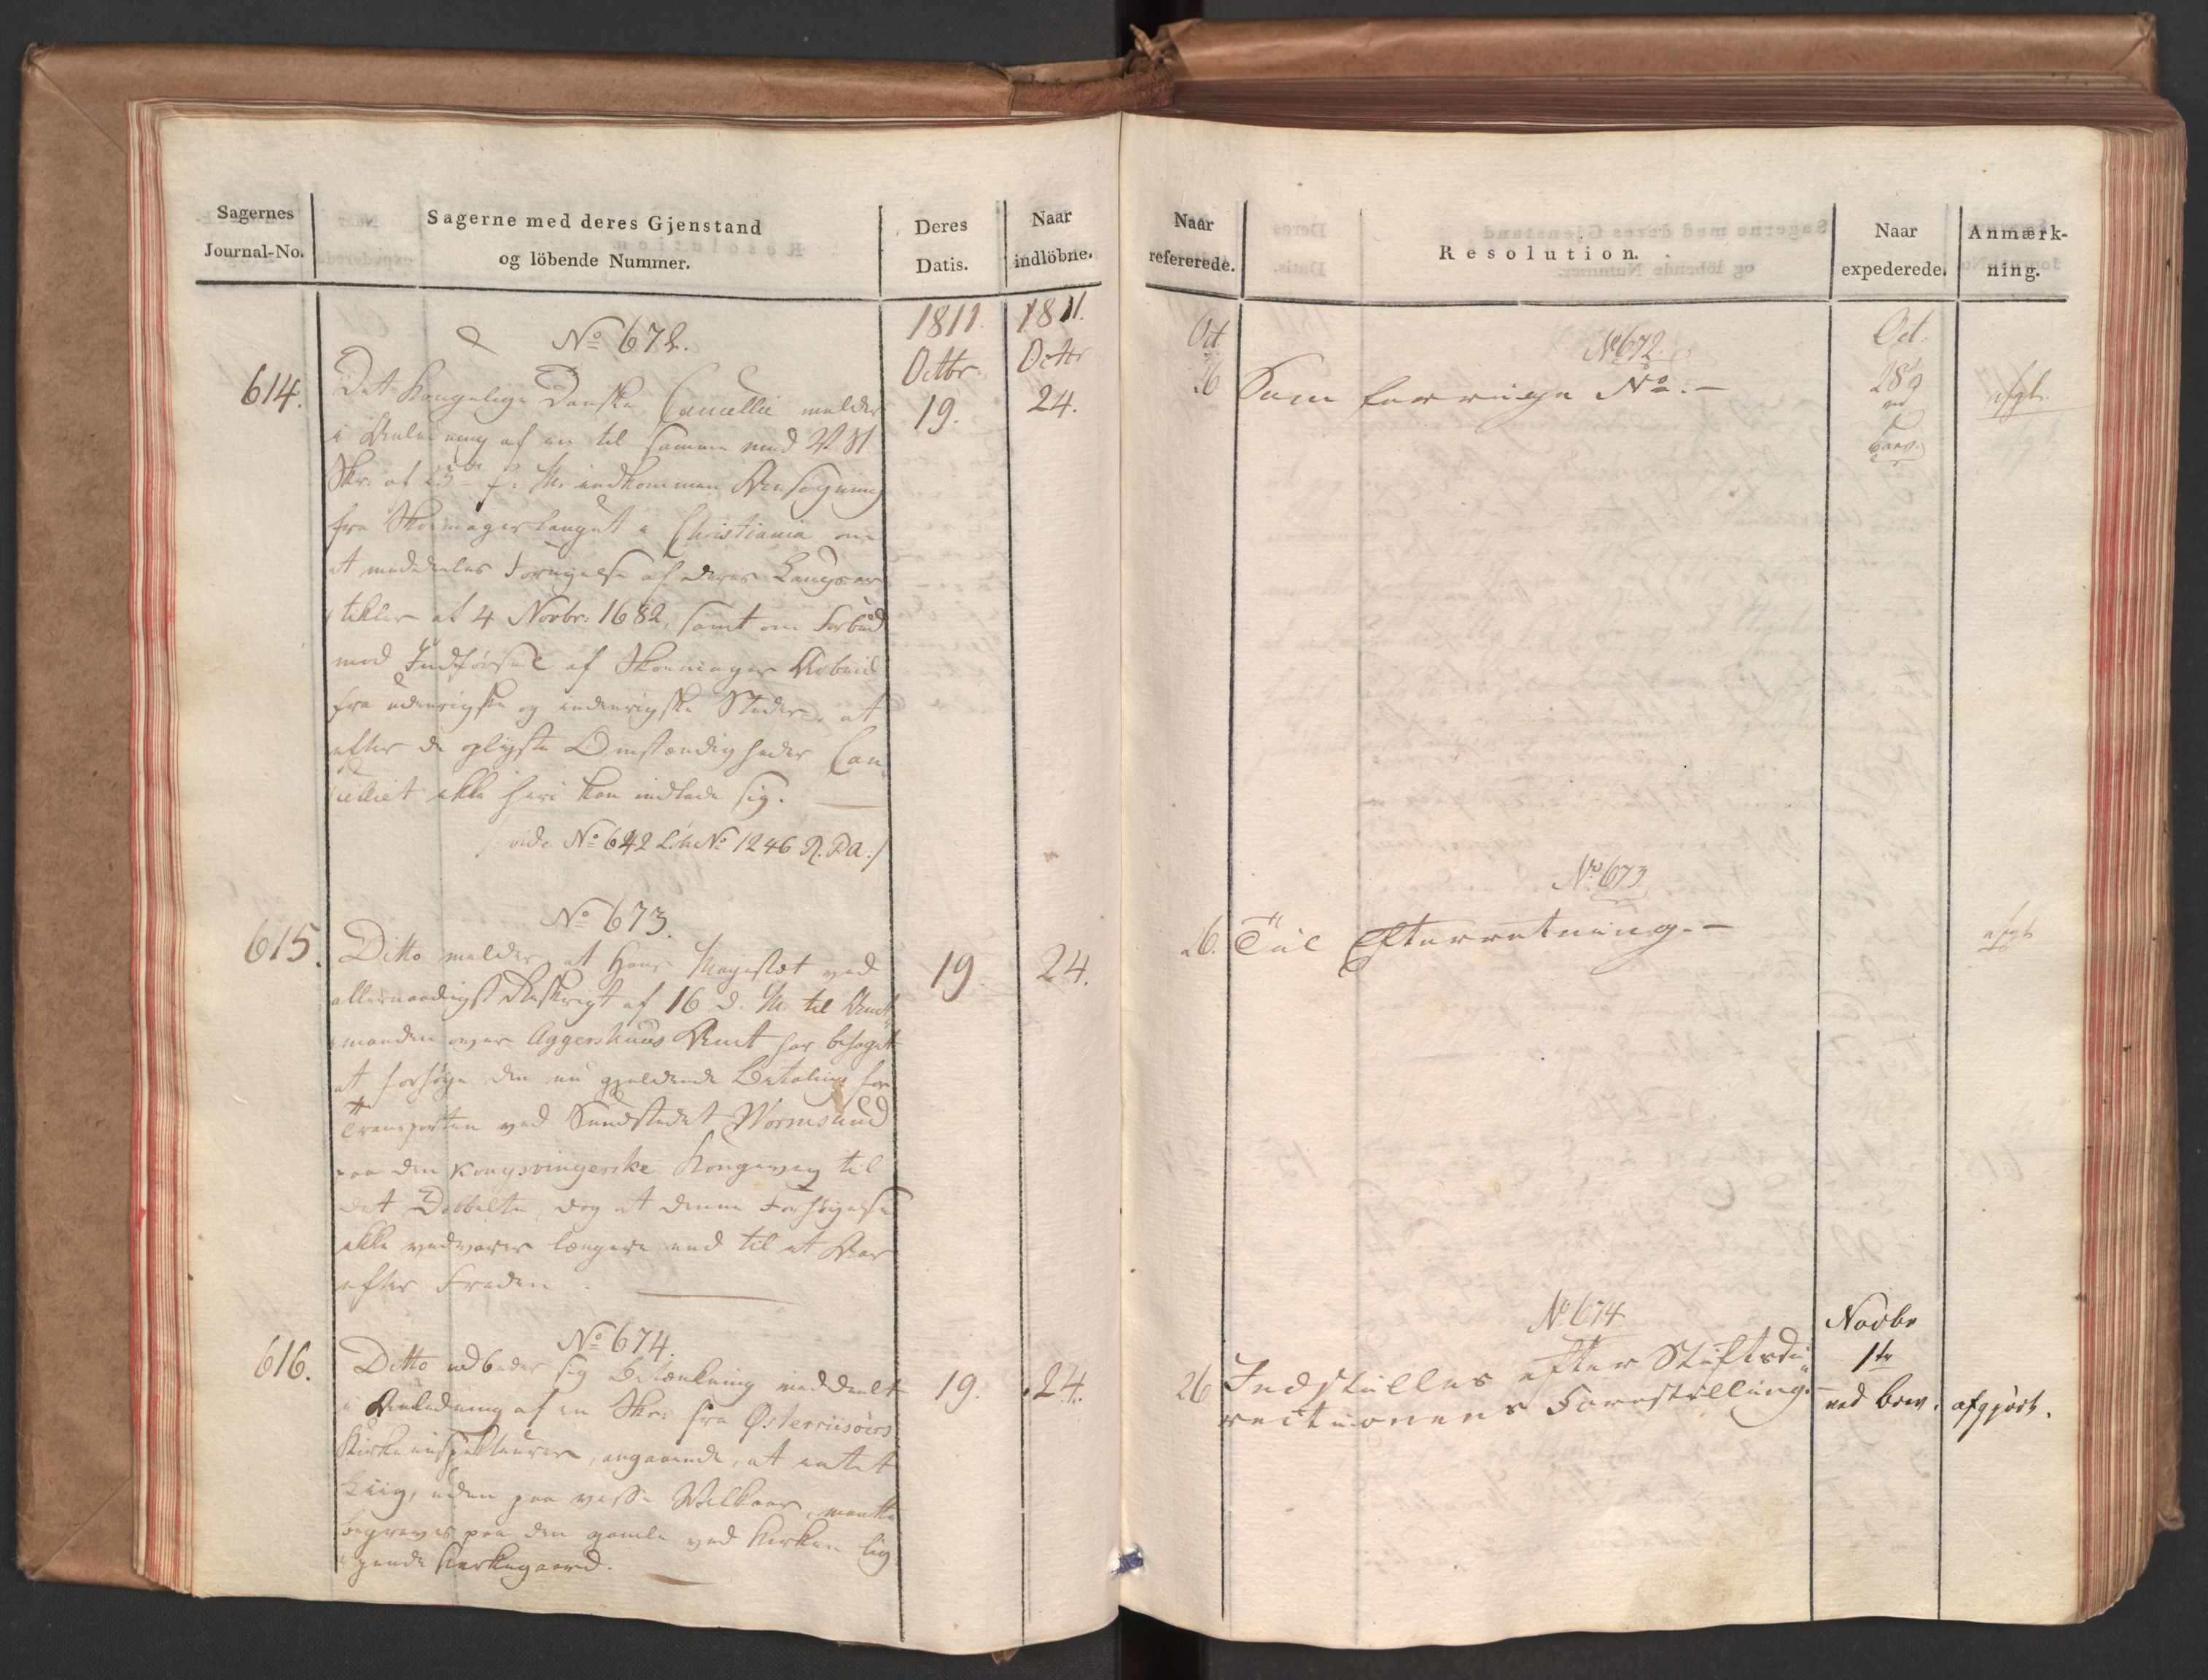 Sagernes
Journal-No.
Sagerne med deres Gjenstand
og löbende Nummer.
Deres
Datis.
Naar
indlöbne.
1811.
Octbr.
1811.
Octbr
No 672.
614.
Det Kongelige Danske Cancellie melder
i Anledning af en til samme med
Skr. af 23de f. M. indkommen Ansøgning
fra Skomagerlauget i Christiania om
at meddeeles Fornyelse af deres Laugsar
tikler af 4 Novbr: 1682, samt om Forbud
mod Indførsel af Skomager Arbeid
fra udenrigske og indenrigske Steder, at
efter de oplyste Omstændigheder Can
celliet ikke heri kan indlade sig.
/: vide No 642 Lób No 1246 R. P. A:/
19.
24.
No 673.
615.
Ditto melder, at Hans Majestæt ved
allernaadigst Reskript af 16 d. M. til Amt
manden over Aggershuus Amt har behaget
at forhøje den nu gjeldende Betaling for
Transporten ved Sundstedet Wormsund
paa den Kongsvingerske Kongevey til
det Dobbelte, dog at denne Forhøyelse
ikke vedvarer længere end til et Aar
efter Freden.
19.
24.
No 674.
616.
Ditto udbeder sig Betænkning meddeelt
i Anledning af en Skr: fra Østerriisöers
Kirkeinspekteurer, angaaende, at intet
Liig, uden paa visse Vilkaar, maatte
begraves paa den gamle ved Kirken lig
gende Kirkegaard.
19.
24.
Naar
refererede.
Resolution.
Naar
expederede.
Anmærk-
ning.
Oct
26
No 672.
Som forrige No.
Oct.
28
afgt.
No 673
26.
Til Efterretning.
afgt.
No 674
26
Indstilles efter Stiftsdi
rectionens Forestilling.
Novbr
1ste
ved brev.
afgjort.